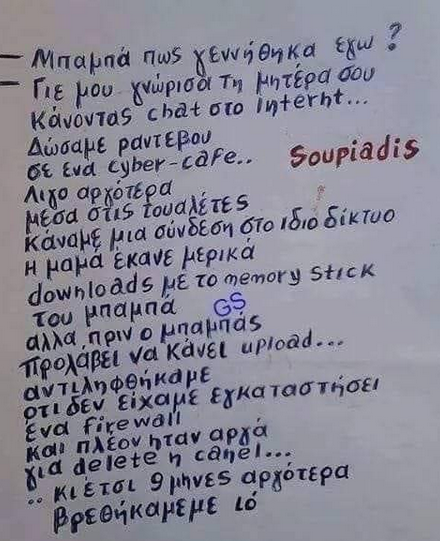 – Μπαμπά πως γεννήθηκα εγω ?
– Γιε μου γνώρισα τη μητέρα σου
κάνοντας chat στο Internt...
Δώσαμε ραντεβου
σε ενα cyber-cafe..
Soupiadis
Λιγο αργότερα
μέσα στις τουαλέτες
κάναμε μια σύνδεση στο ιδιο δίκτυο
η μαμά έκανε μερικά
downloads με το memory stick
του μπαμπά
GS
αλλα, πριν ο μπαμπάς
προλάβει να κάνει upload...
αντιληφθήκαμε
οτι δεν είχαμε εγκαταστήσει
ένα firewall
και πλέον ηταν αργά
για delete η canel...
.. κι έτσι 9 μηνες αργότερα
βρεθήκαμεμε ιό